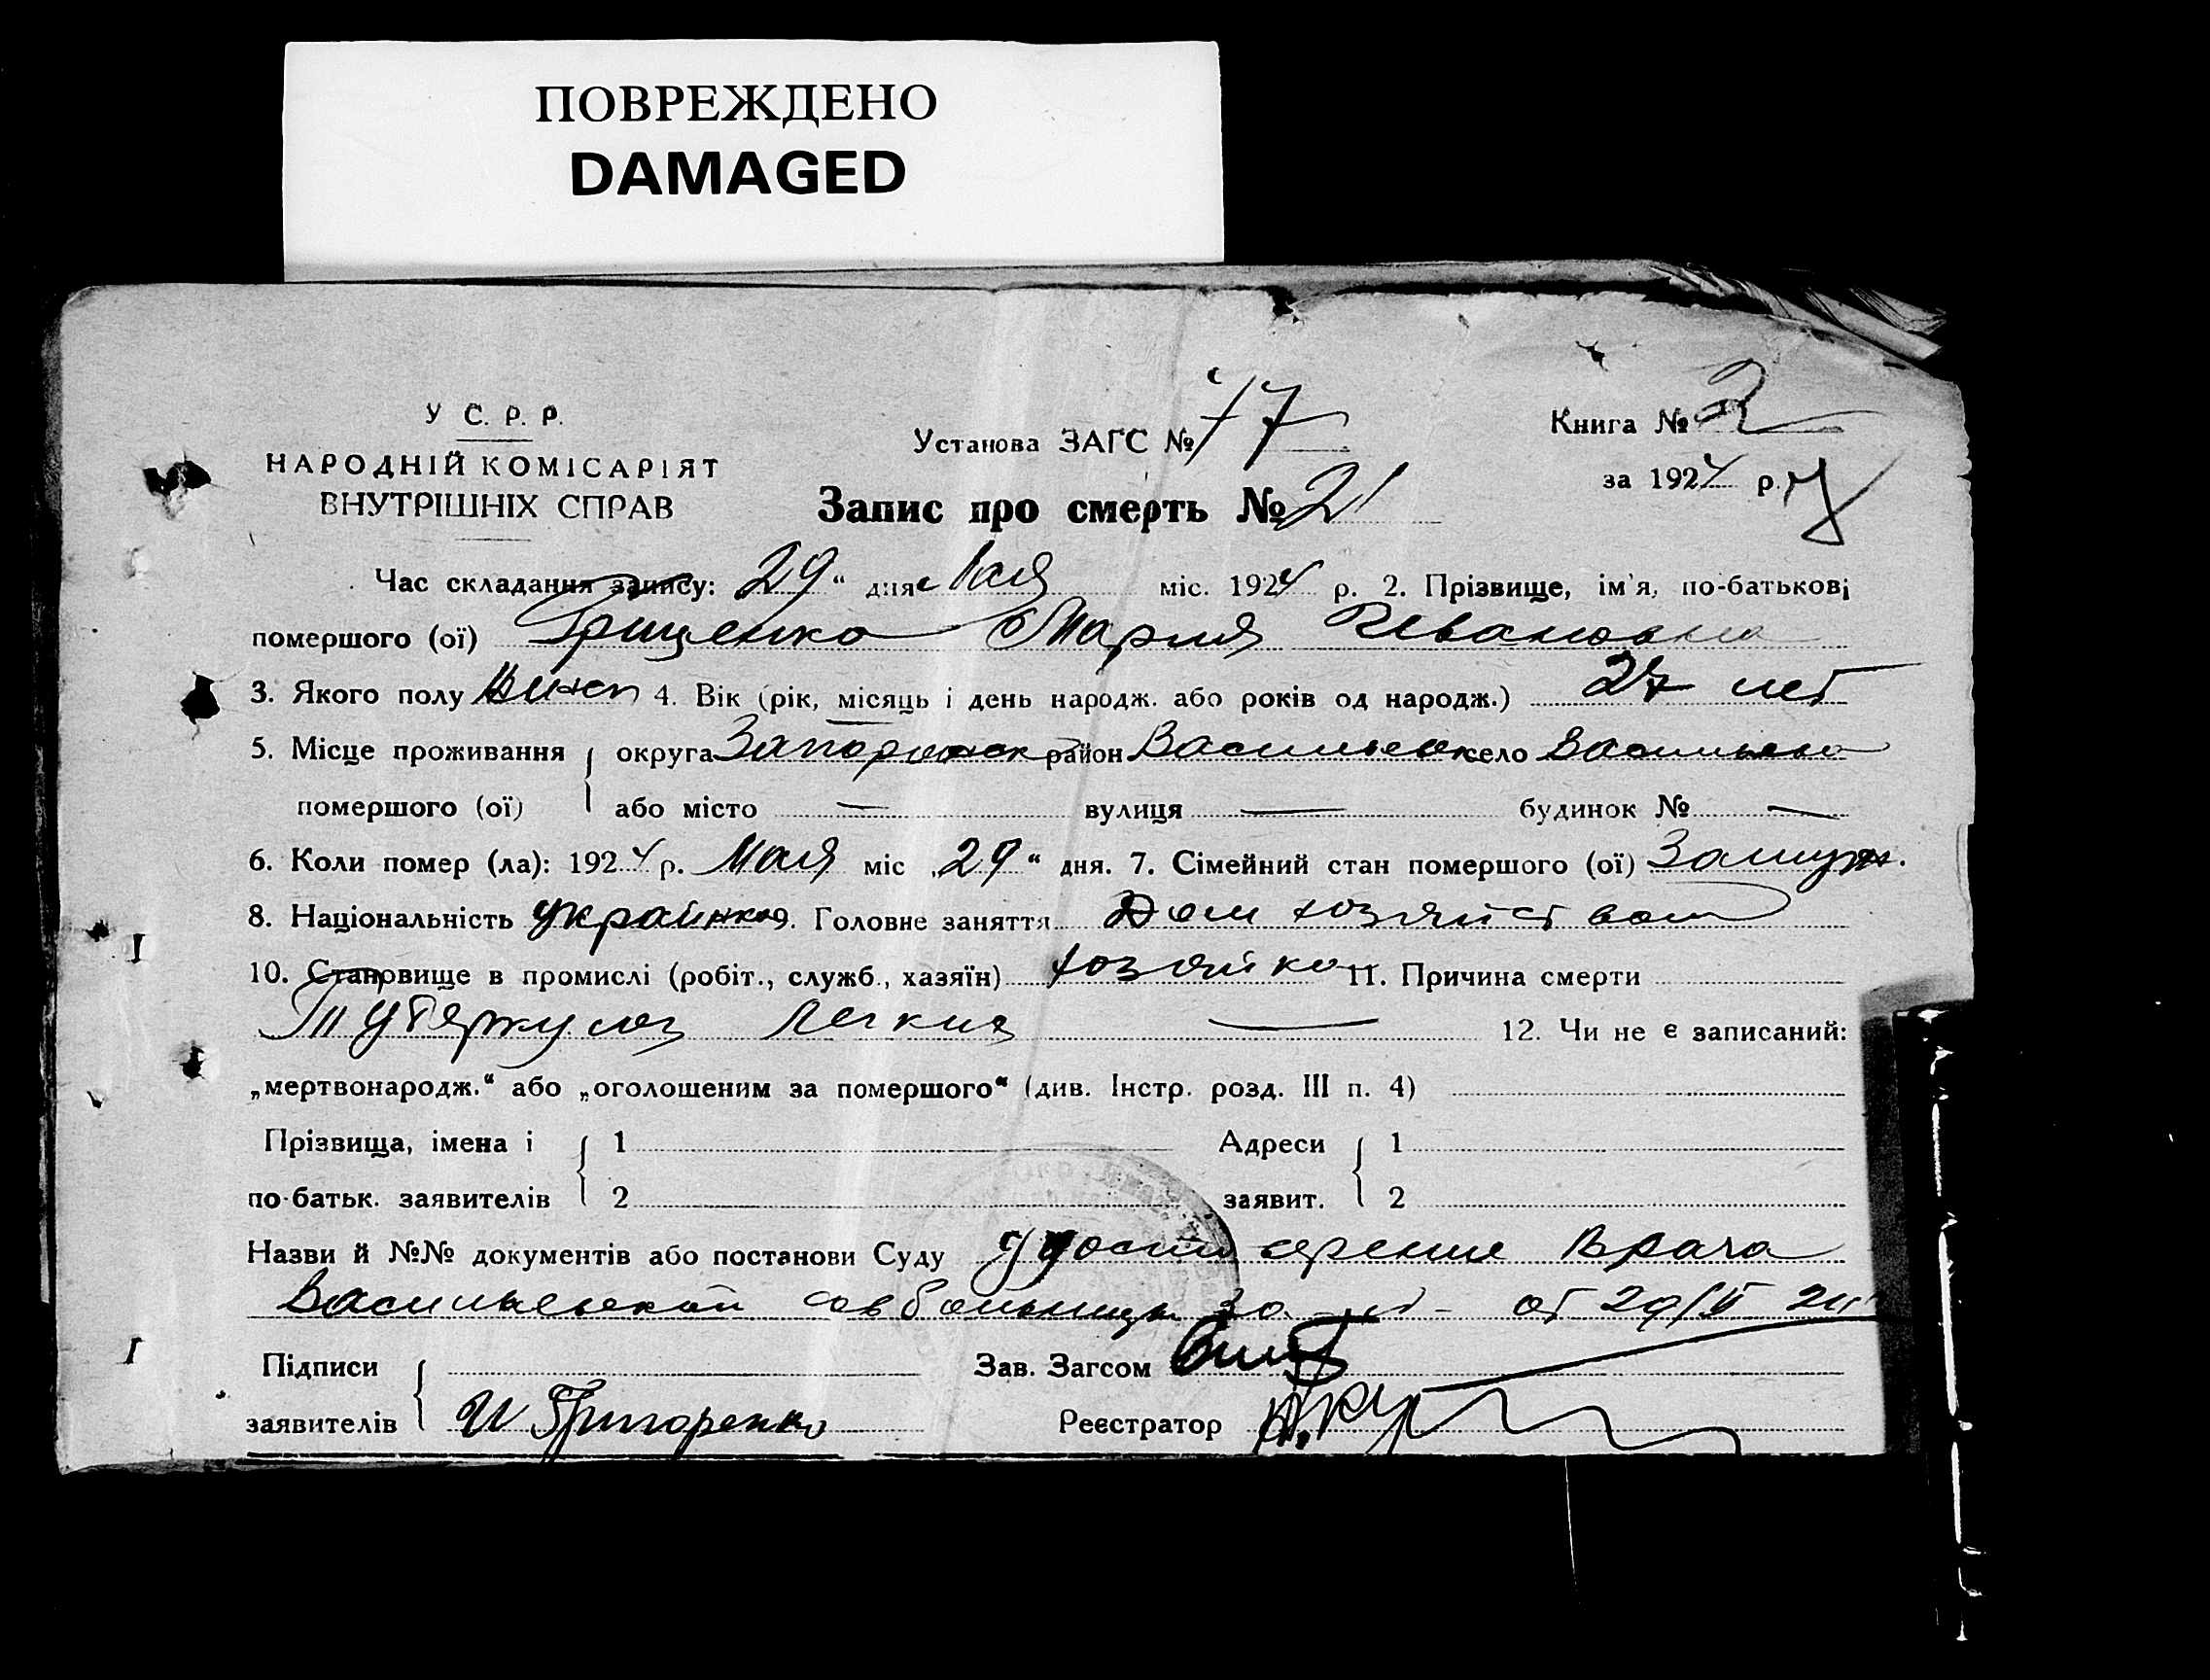 ПОВРЕЖДЕНО
DAMAGED
У С. Р. Р.
НАРОДНІЙ КОМІСАРІЯТ
ВНУТРІШНІХ СПРАВ
Установа ЗАГС № 77
Книга № 2
за 1924 р.
Запис про смерть № 21
Час складання запису: 29“ дня Мая міс. 1924 р. 2. Прізвище, ім'я, по-батькові
помершого (ої) Грищенко Мария Ивановна
3. Якого полу женск 4. Вік (рік, місяць і день народж. або років од народж.) 27 лет
5. Місце проживання округа Запорожск район Васильевск село Васильевка
помершого (ої) або місто — вулиця — будинок № —
6. Коли помер (ла): 1924 р. Мая міс „29“ дня. 7. Сімейний стан помершого (ої) Замуж.
8. Національність украинка 9. Головне заняття Дом хозяйством
10. Становище в промислі (робіт., служб., хазяїн) хозяйка 11. Причина смерти
Туберкулез легких — 12. Чи не є записаний:
„мертвонародж.“ або „оголошеним за помершого“ (див. Інстр. розд. III п. 4)
Прізвища, імена і 1 Адреси 1
по-батьк. заявителів 2 заявит. 2
Назви й №№ документів або постанови Суду Удостоверение Врача
Васильевской совбольницы за № - от 29/V 24
Підписи Зав. Загсом
заявителів И Григоренко Реєстратор